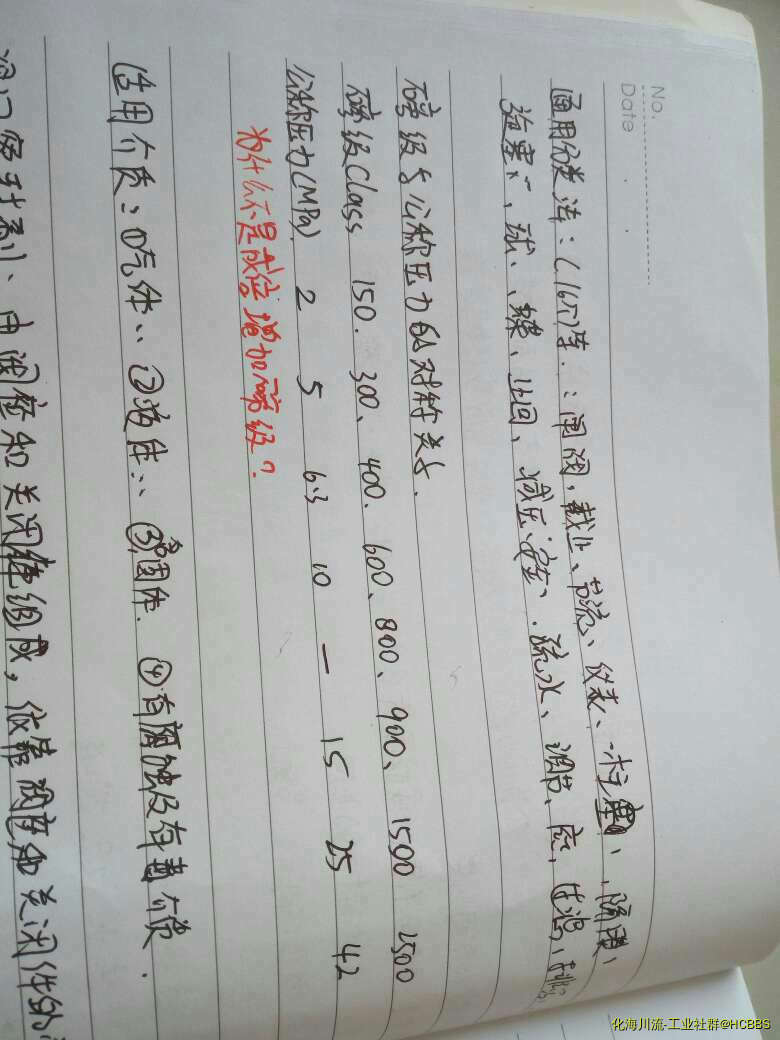 No.
Date
通用分类法:(16种).:闸阀,截止、节流、仪表、柱塞、隔膜、
旋塞、球、蝶、止回、减压、安全、疏水、调节、底,过滤、排
磅级与公称压力的对应关系.
磅级Class 150. 300、400. 600、800、900、1500 2500
公称压力(MPa) 2 5 6.3 10 — 15 25 42
为什么不是成倍增加磅级?
适用介质:①气体、②液体、③固体. ④有腐蚀及有毒介质.
阀门密封副、由阀座和关闭件组成,依靠阀座和关闭件的
化海川流-工业社群@HCBBS